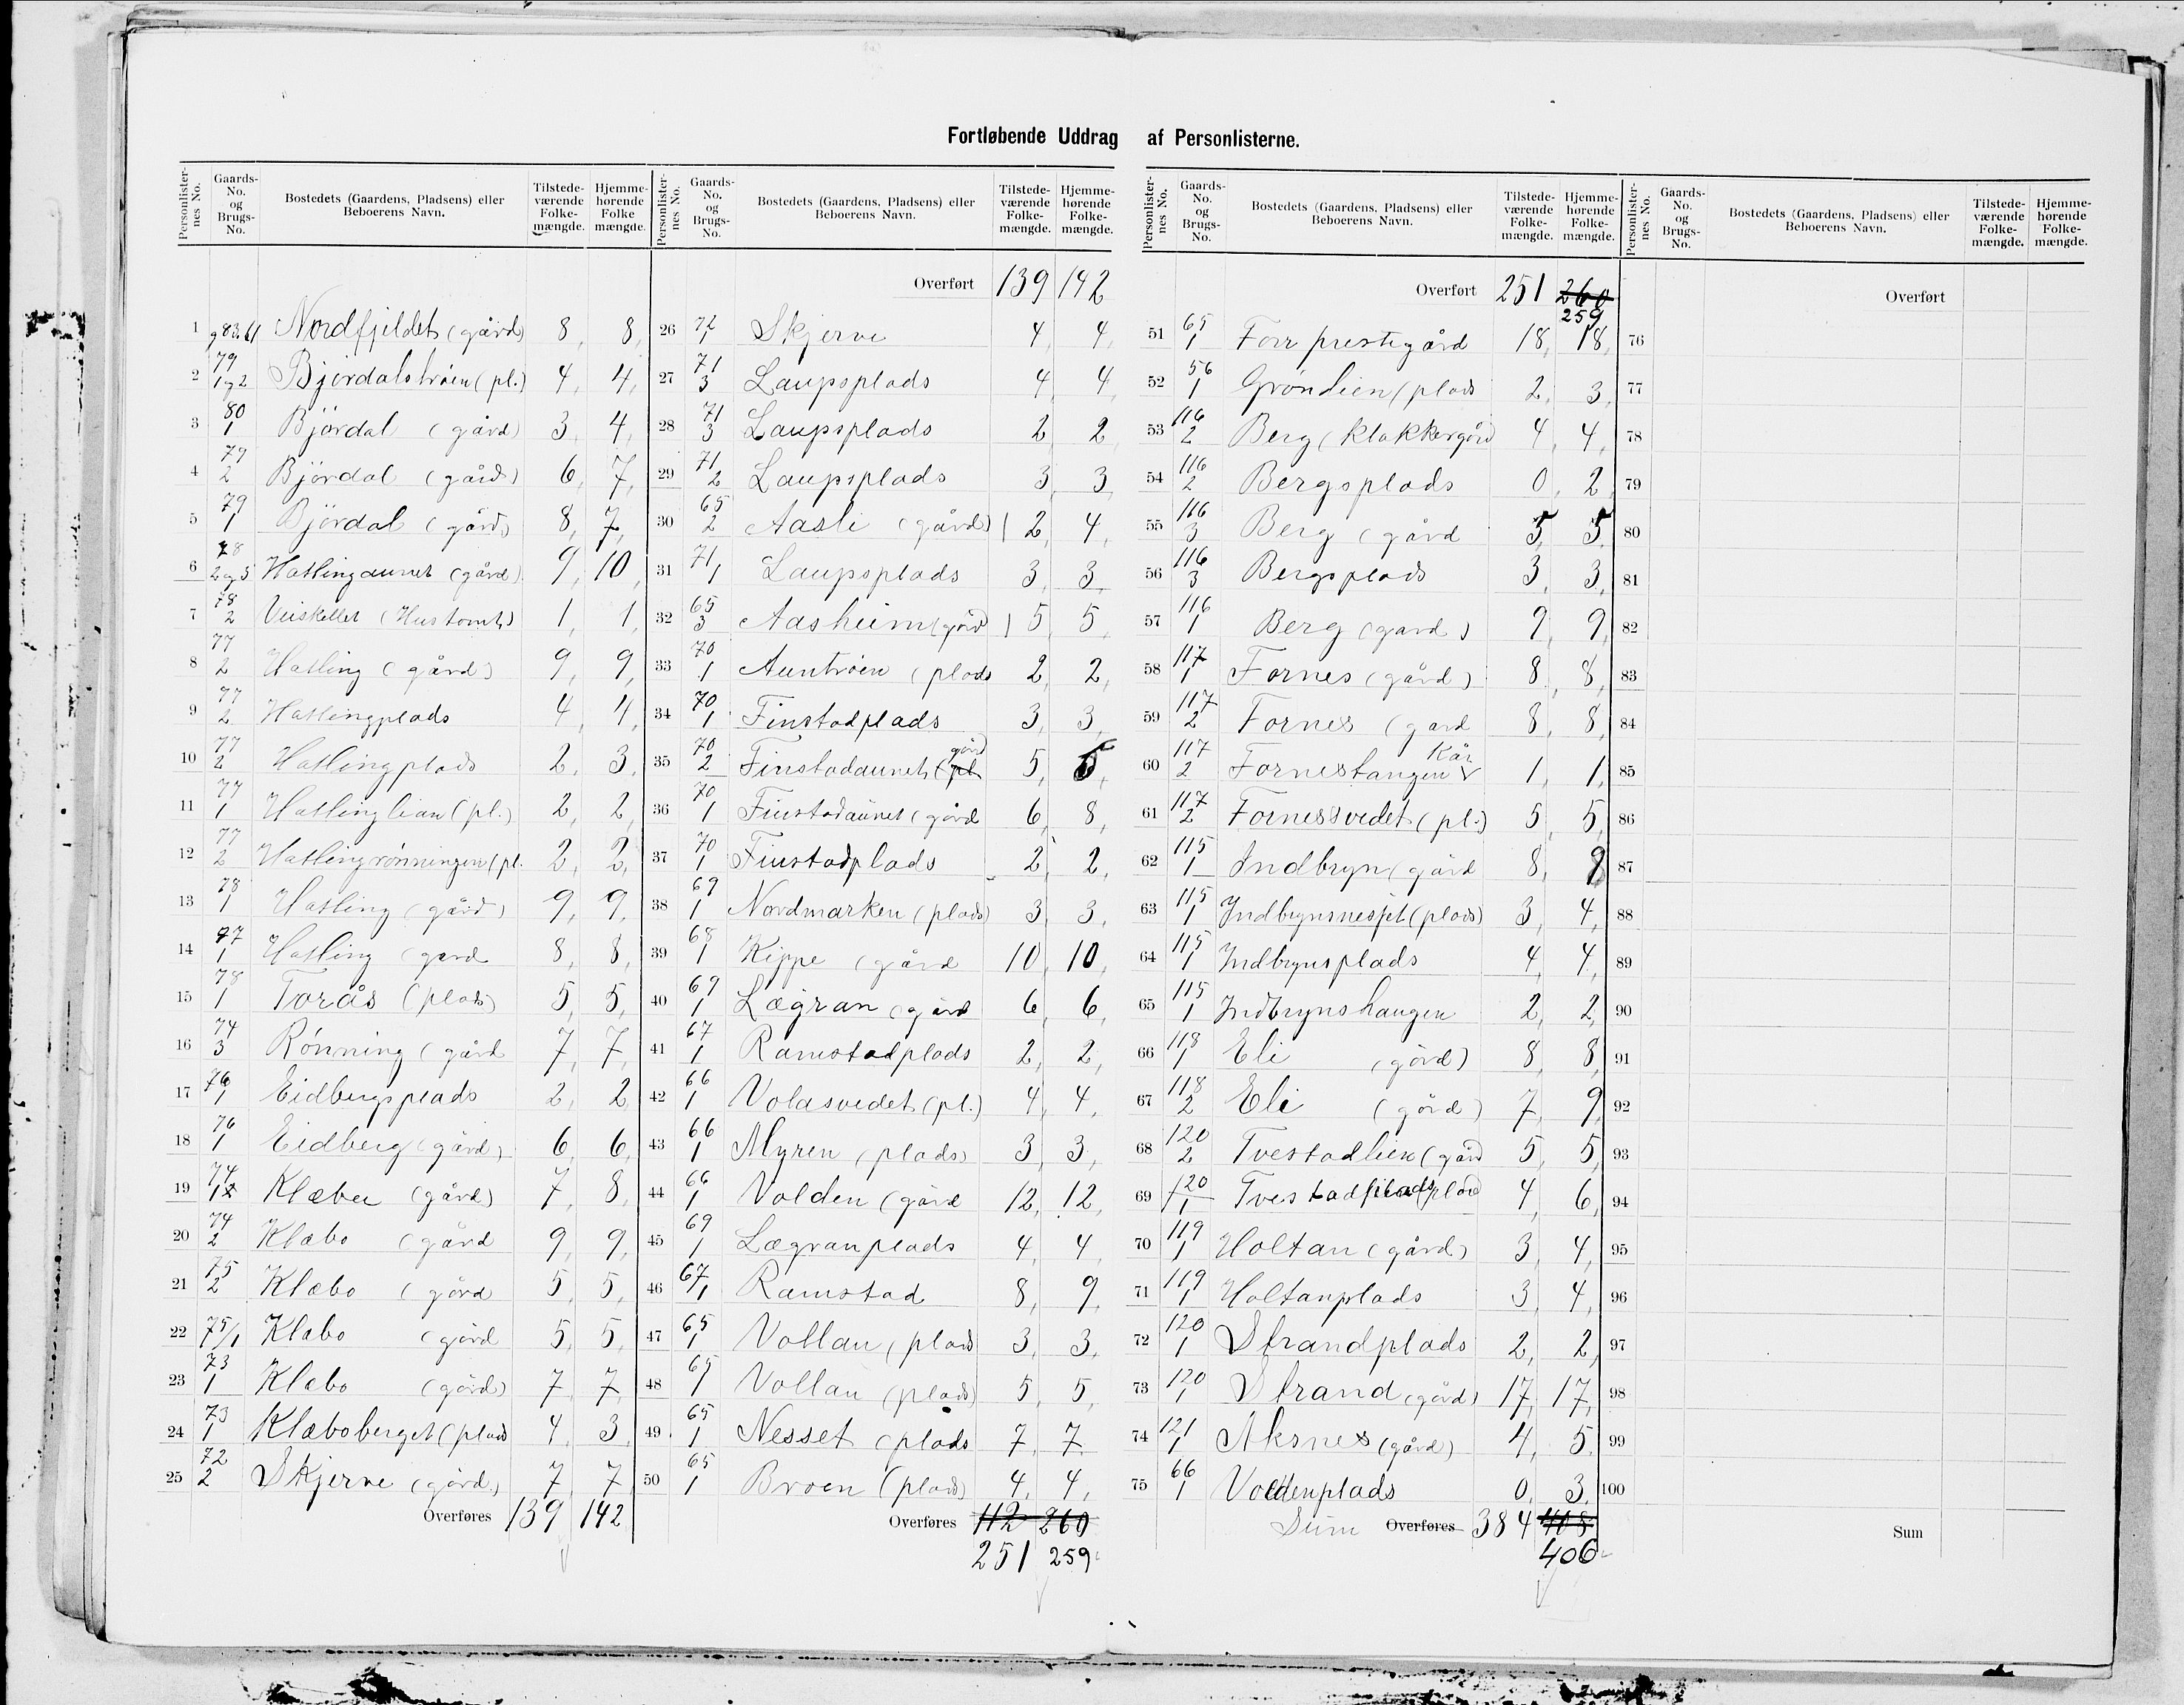 Fortløbende Uddrag af Personlisterne.
Personlisternes No. Gaards-No. og Brugs-No. Bostedets (Gaardens, Pladsens) eller Beboerens Navn. Tilstedeværende Folkemængde. Hjemmehørende Folkemængde.
1 Nordfjeldet (gård) 8, 8,
2 79 1 og 2 Bjørdalstrøen (pl.) 4, 4,
3 80 1 Bjørdal (gård) 3, 4,
4 79 2 Bjørdal (gård) 6, 7,
5 79 1 Bjørdal (gård) 8, 7,
6 78 2 og 5 Haslingaunet (gård) 9, 10,
7 78 2 Veiskellet (Hustomt) 1, 1,
8 77 2 Hasling (gård) 9, 9,
9 77 2 Haslingplads 4, 4,
10 77 2 Haslingplads 2, 3,
11 77 1 Haslinglian (pl.) 2, 2,
12 77 2 Haslingrønningen (pl. 2, 2,
13 78 1 Hasling (gård) 9, 9,
14 77 1 Hasling (gard 8, 8,
15 78 1 Torås (plads) 5, 5,
16 74 3 Rønning (gård 7, 7,
17 76 1 Eidbergsplads 2, 2
18 76 1 Eidberg (gård) 6, 6,
19 74 1 Klæbu (gård) 7, 8,
20 74 2 Klæbo (gård 9, 9,
21 75 2 Klæbo (gård 5, 5,
22 75/1 Klæbo (gård 5, 5,
23 73 1 Klæbo (gård) 7, 7,
24 73 1 Klæboberget (plads 4, 3
25 72 2 Skjerve (gård) 7, 7,
Overføres 139 142
Personlisternes No. Gaards-No. og Brugs-No. Bostedets (Gaardens, Pladsens) eller Beboerens Navn. Tilstedeværende Folkemængde. Hjemmehørende Folkemængde.
Overført 139 142
26 72 1 Skjerve 4, 4,
27 71 3 Laupsplads 4, 4,
28 71 3 Laupsplads 2, 2,
29 71 2 Laupsplads 3, 3,
30 65 2 Aasli (gård) 2, 4,
31 71 1 Laupsplads 3, 3,
32 65 3 Aasheim (gård) 5, 5,
33 70 1 Auntrøen (plads 2, 2,
34 70 1 Finstadplads 3, 3,
35 70 2 Finstadaunet (pl. gård 5, 5,
36 70 1 Finstadaunet (gård 6, 8,
37 70 1 Finstadplads 2, 2,
38 69 1 Nordmarken (plads) 3, 3,
39 68 1 Kippe (gård 10, 10,
40 69 1 Lægran (gård 6, 6,
41 67 1 Ramstadplads 2, 2,
42 66 1 Volasvedet (pl.) 4, 4,
43 66 1 Myren (plads) 3, 3,
44 66 1 Volden (gård 12, 12,
45 69 1 Lægranplads 4, 4,
46 67 1 Ramstad 8, 9,
47 65 1 Vollan (plads 3, 3,
48 65 1 Vollan (plads) 5, 5,
49 65 1 Nesset (plads 7, 7
50 65 1 Broen (plads) 4, 4,
Overføres 112 260
251 259
Personlisternes No. Gaards-No. og Brugs-No. Bostedets (Gaardens, Pladsens) eller Beboerens Navn. Tilstedeværende Folkemængde. Hjemmehørende Folkemængde.
Overført 251 260
259
51 65 1 Forr prestegård 18, 18,
52 56 1 Grønlien (plads 2, 3,
53 116 2 Berg (klokkergård 4, 4,
54 116 2 Bergsplads 0, 2
55 116 3 Berg (gård 5, 5
56 116 3 Bergsplads 3, 3,
57 116 1 Berg (gard) 9, 9,
58 117 1 Fornes (gård) 8, 8,
59 117 2 Fornes (gard 8, 8,
60 117 2 Fornestangen 1, 1,
61 117 2 Fornessvedet (pl.) 5, 5,
62 115 1 Indbryn (gård 8,
63 115 1 Indbrynsnesset (plads) 3, 4,
64 115 1 Indbrynsplads 4, 4,
65 115 1 Indbrynshaugen 2, 2,
66 118 1 Eli (gård) 8, 8,
67 118 2 Eli (gård) 7, 9,
68 120 2 Tvestadlien (gård 5, 5,
69 120 1 4, 6,
70 119 1 Holtan (gård) 3, 4,
71 119 1 Holtanplads 3, 4,
72 120 1 Strandplads 2, 2,
73 120 1 Strand (gård) 17, 17,
74 121 1 Aksnes (gård) 4, 5,
75 66 1 Voldenplads 0, 3,
Sum Overføres 384 408
406
Personlisternes No. Gaards-No. og Brugs-No. Bostedets (Gaardens, Pladsens) eller Beboerens Navn. Tilstedeværende Folkemængde. Hjemmehørende Folkemængde.
Overført
76
77
78
79
80
81
82
83
84
85
86
87
88
89
90
91
92
93
94
95
96
97
98
99
100
Sum